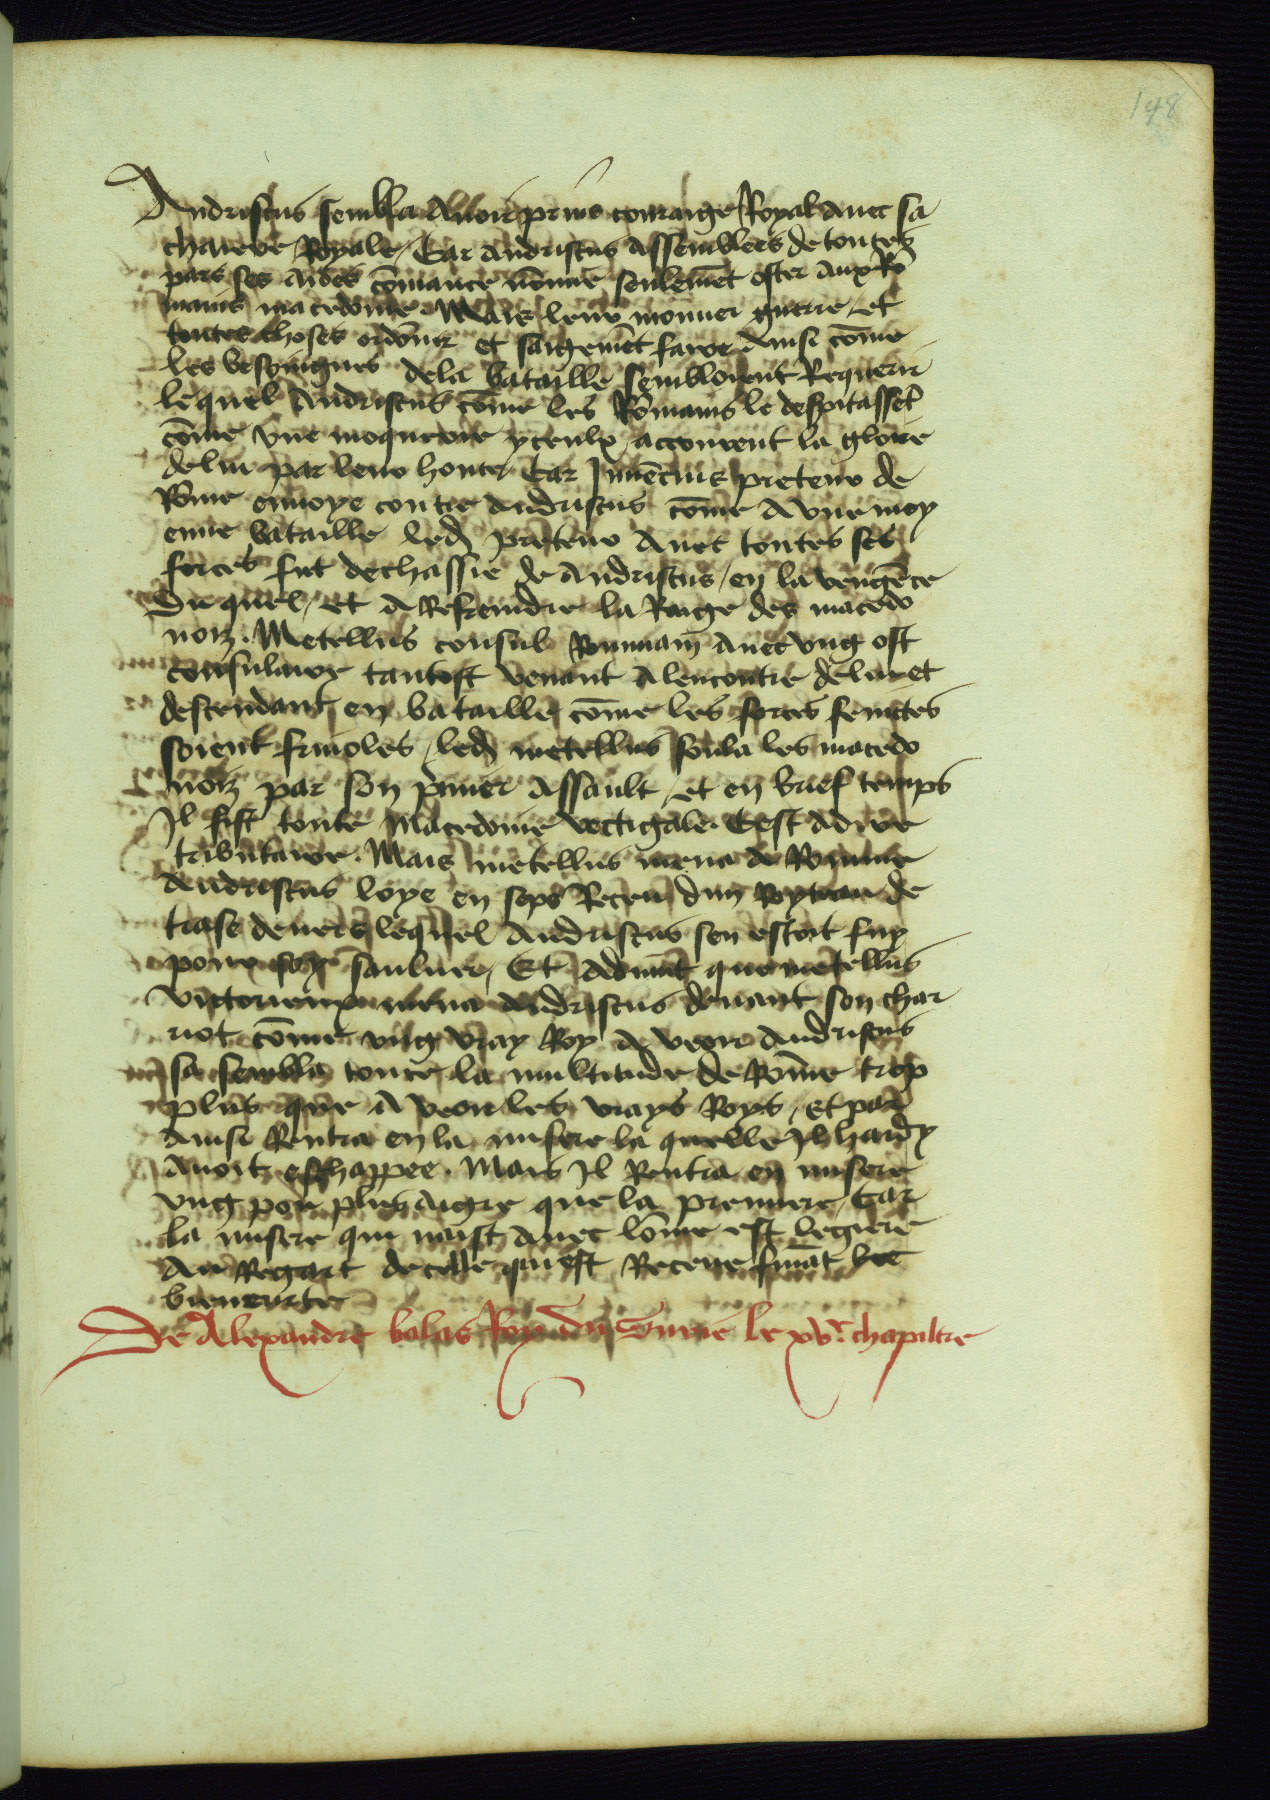 148
Andriscus sembla Avoir prins couraige Royal avec sa
chaiere Royale / Car Andriscus Assemblees de toutes
pars ses Aides cōmance nōnmie seulemēt oster Aux Rō
mains macedoine. Mais leur mouuer guerre / et
toutes choses ordōner et saigemēt faire Ainsi cōme
les besoingnes dela bataille sembloient Requerir
lequel Andriscus cōme les Rōmains le despitassēt
cōme vne moquerie yceulx accrurent la gloire
de lui par leur honte / Car Juuēcius preteur de
Rōme enuoye contre Andriscus cōme A vne moy
enne bataille led preteur Avec toutes ses
forces fut dechassie de Andriscus / en la vengēce
Du quel / et A Refraindre la Raige des macedo
nois. Metellus consul Rommain avec vng ost
consulaire tantost venant Alencontre de lui et
descendant en bataille cōme les forces faintes
soient friuoles / led metellus foula les macedo
nois par son pmier Assault / et en brief temps
Il fist toute Macedoine vectigale. Cest Adire
tributaire. Mais metellus mena A Romme
Andriscus loye en seps Receu dun Royteau de
trase deuers lequel Andriscus sen estoit fuy
pour soy sauluer / Et Adōuīt que metellus
victorieux mena Andriscus deuant son char
riot cōme vng vray Roy A veoir Andriscus
sa sembla toute la multitude de Rōme trop
plus que A veoir les vrays Roys / et par
Ainsi Rentra en la misere la quelle Il hardy
Avoit eschappee. Mais Il Rentra en misere
vng pou plus Aigre que la premiere / Car
la misere qui naist Avec lōme est legiere
Au Regart de celle qui est Receue
bieneurte
De Alexandre balas Roy du Surie le xvͤ chapiltre